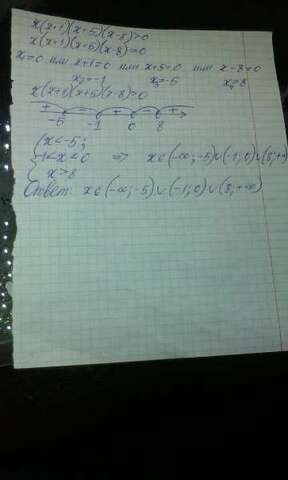 x(x+1)(x+5)(x-8)>0
x(x+1)(x+5)(x-8)=0
x₁=0 или x+1=0 или x+5=0 или x-8=0
x₂=-1 x₃=-5 x₄=8
x(x+1)(x+5)(x-8)>0
+ - + - +
-5 -1 0 8
{ x<-5;
-1<x<0 ⇒ x∈(-∞;-5)∪(-1;0)∪(8;+∞)
x>8
Ответ: x∈(-∞;-5)∪(-1;0)∪(8;+∞)